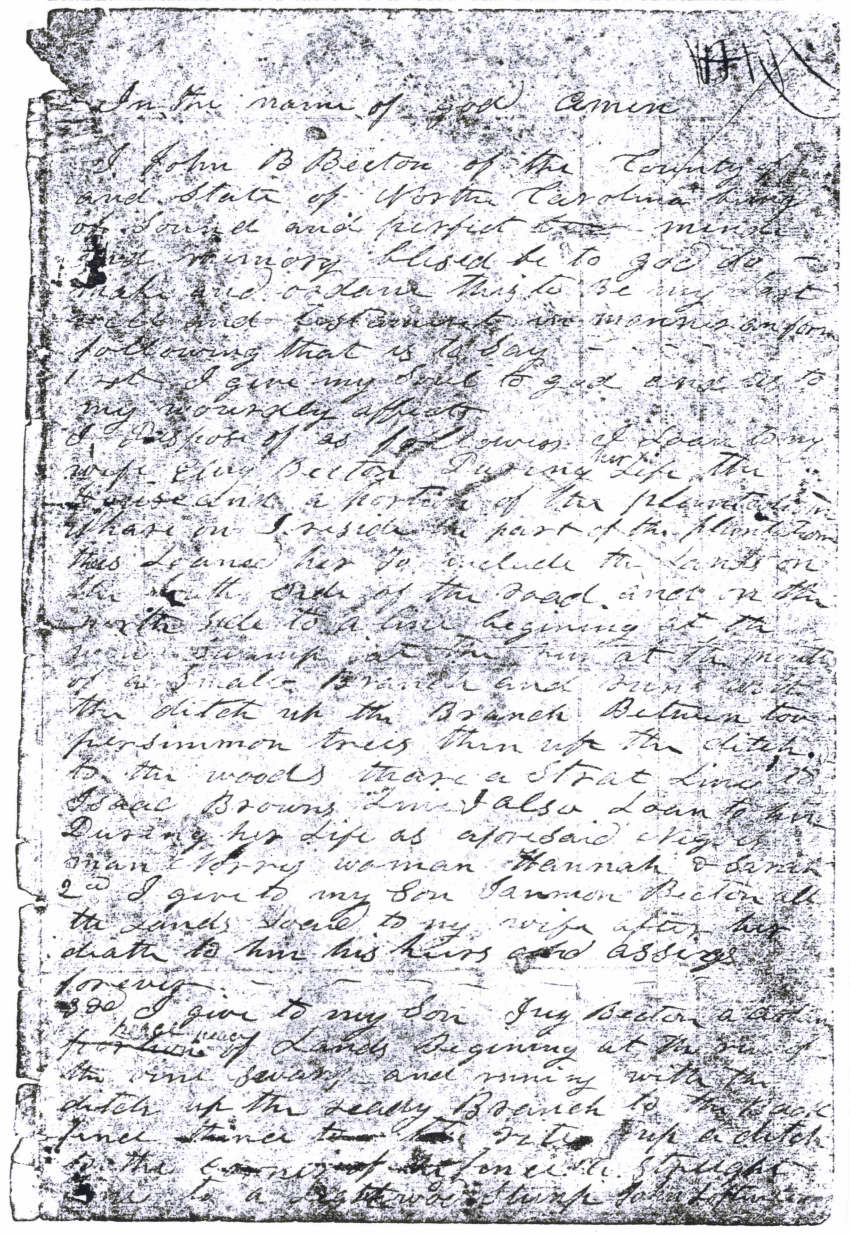 In the name of god amen
I John B Becton of the County of
and State of North Carolina being
of Sound and perfict mind
and memory blised be to god do
make and ordane this to be my last
will and testament in manner an form
following that is to say
1 st I give my Soul to god and as to
my wourdly affects
I dispose of as follows I Loan to my
wife Becton During her Life the
a portion of the plantation
whare on I reside the part of the plantation
thus Loaned her to include the Lands on
the South Side of the road and on the
north side to a line begining at the
swamp at the run at the mouth
of a Small Branch and runs with
the ditch up the Branch Between too
persimmon trees then up the ditch
to the woods thare a Strat Line to
Isaac Browns Line I also Loan to her
During her Life as aforesaid Negro
man woman Hannah & Sarah
2nd I give to my Son Becton all
the Lands Loand to my wife after her
death to him his heirs and assigs
forever
3de I give to my Son Becton a
peace of Lands Begining at the run of
the vine Swamp and runing with the
ditch up the Ready Branch to the
up a ditch
to the fence straight
line to a Stump